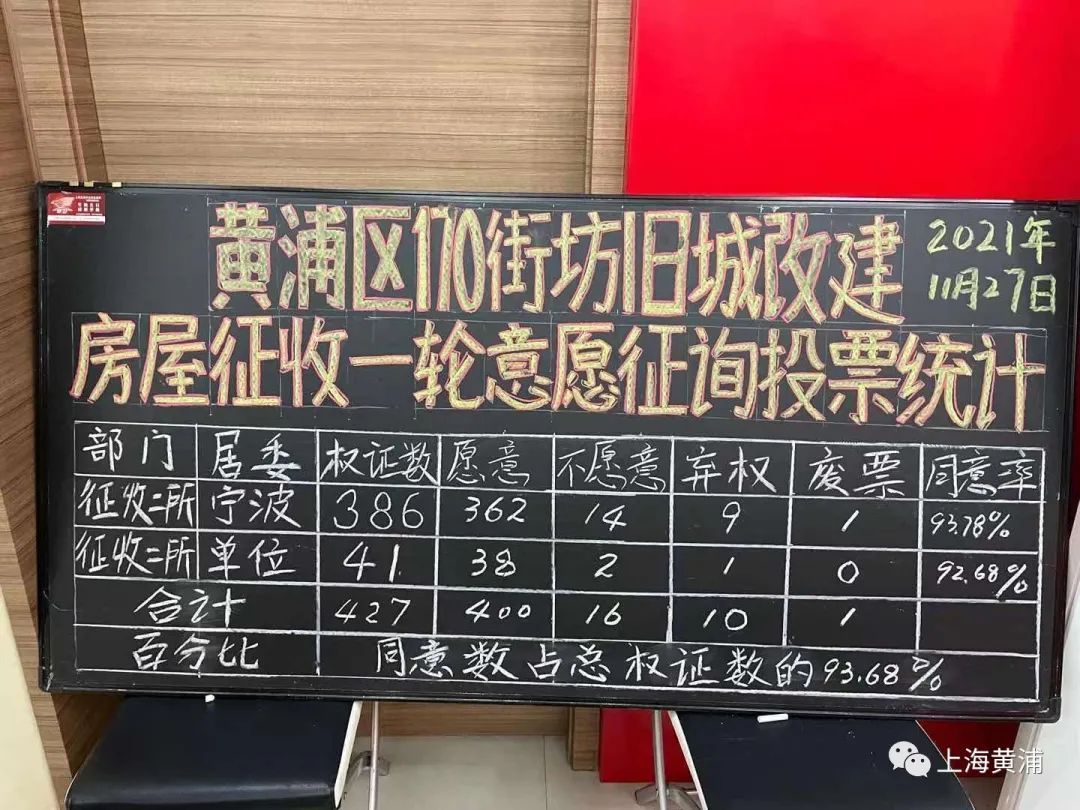 黄浦区170街坊旧城改建
2021年
11月27日
房屋征收一轮意愿征询投票统计
部门 居委 权证数 愿意 不愿意 弃权 废票 同意率
征收二所 宁波 386 362 14 9 1 93.78%
征收二所 单位 41. 38 2 1 0 92.68%
合计 427 400 16 10 1
百分比 同意数占总权证数的93.68%
上海黄浦